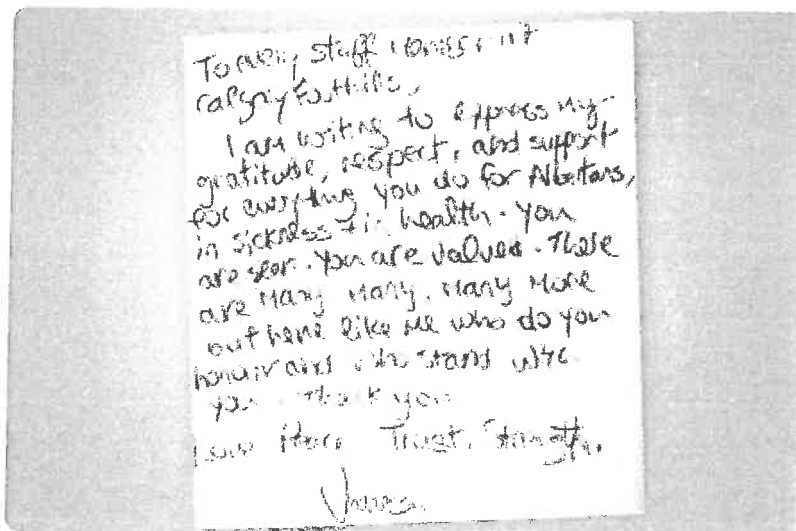 To staff
Calgary Foothills,
I am writing to express my
gratitude, respect, and support
for everything you do for Albertans,
in sickness + in health. You
are seen. You are valued. There
are many many, many more
out here like me who do you
honour and who stand with
you. Thank you
Trust, Strength,